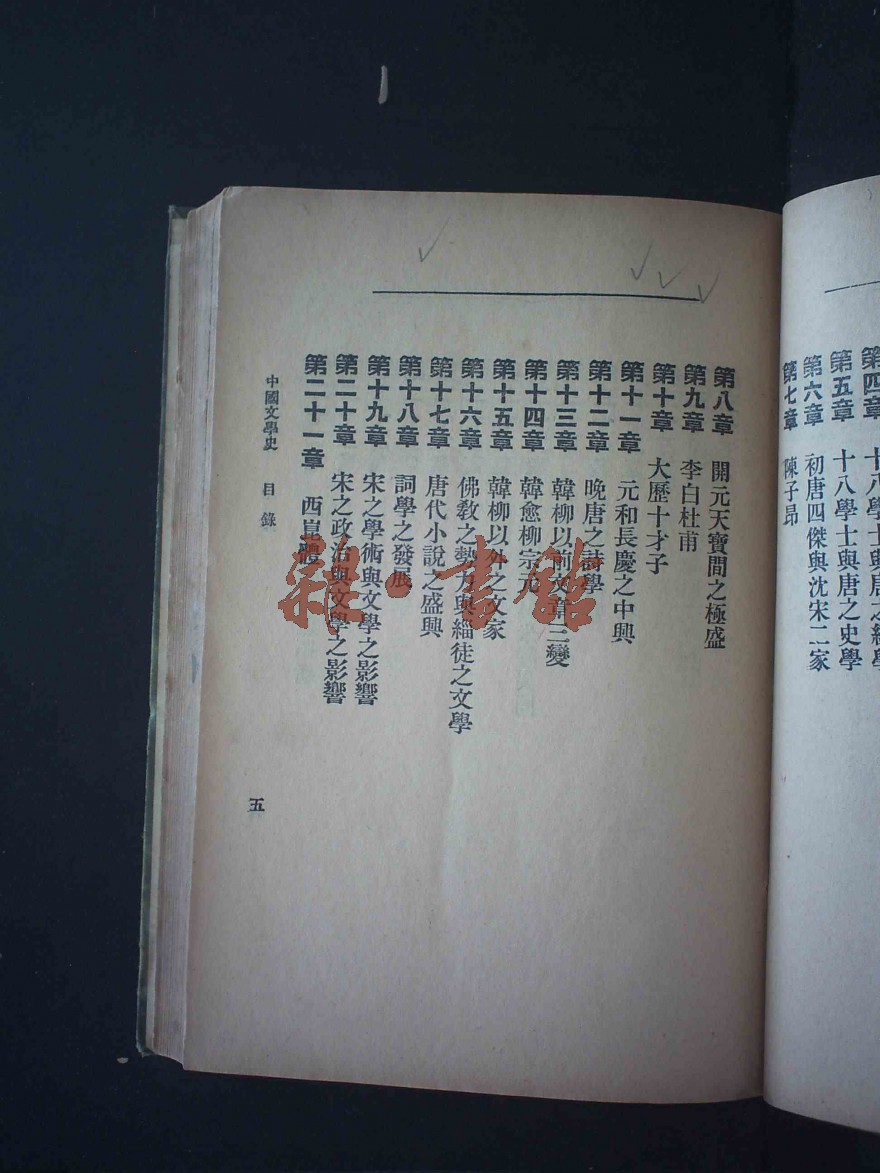 第四章 十八學士與唐之經學
第五章 十八學士與唐之史學
第六章 初唐四傑與沈宋二家
第七章 陳子昂
第八章 開元天寶間之極盛
第九章 李白杜甫
第十章 大歷十才子
第十一章 元和長慶之中興
第十二章 晚唐之詩學
第十三章 韓柳以前文章三變
第十四章 韓愈柳宗元
第十五章 韓柳以外之文家
第十六章 佛敎之勢力與緇徒之文學
第十七章 唐代小說之盛興
第十八章 詞學之發展
第十九章 宋之學術與文學之影響
第二十章 宋之政治與文學之影響
第二十一章 西崑體
中國文學史 目錄
五
雜·書館